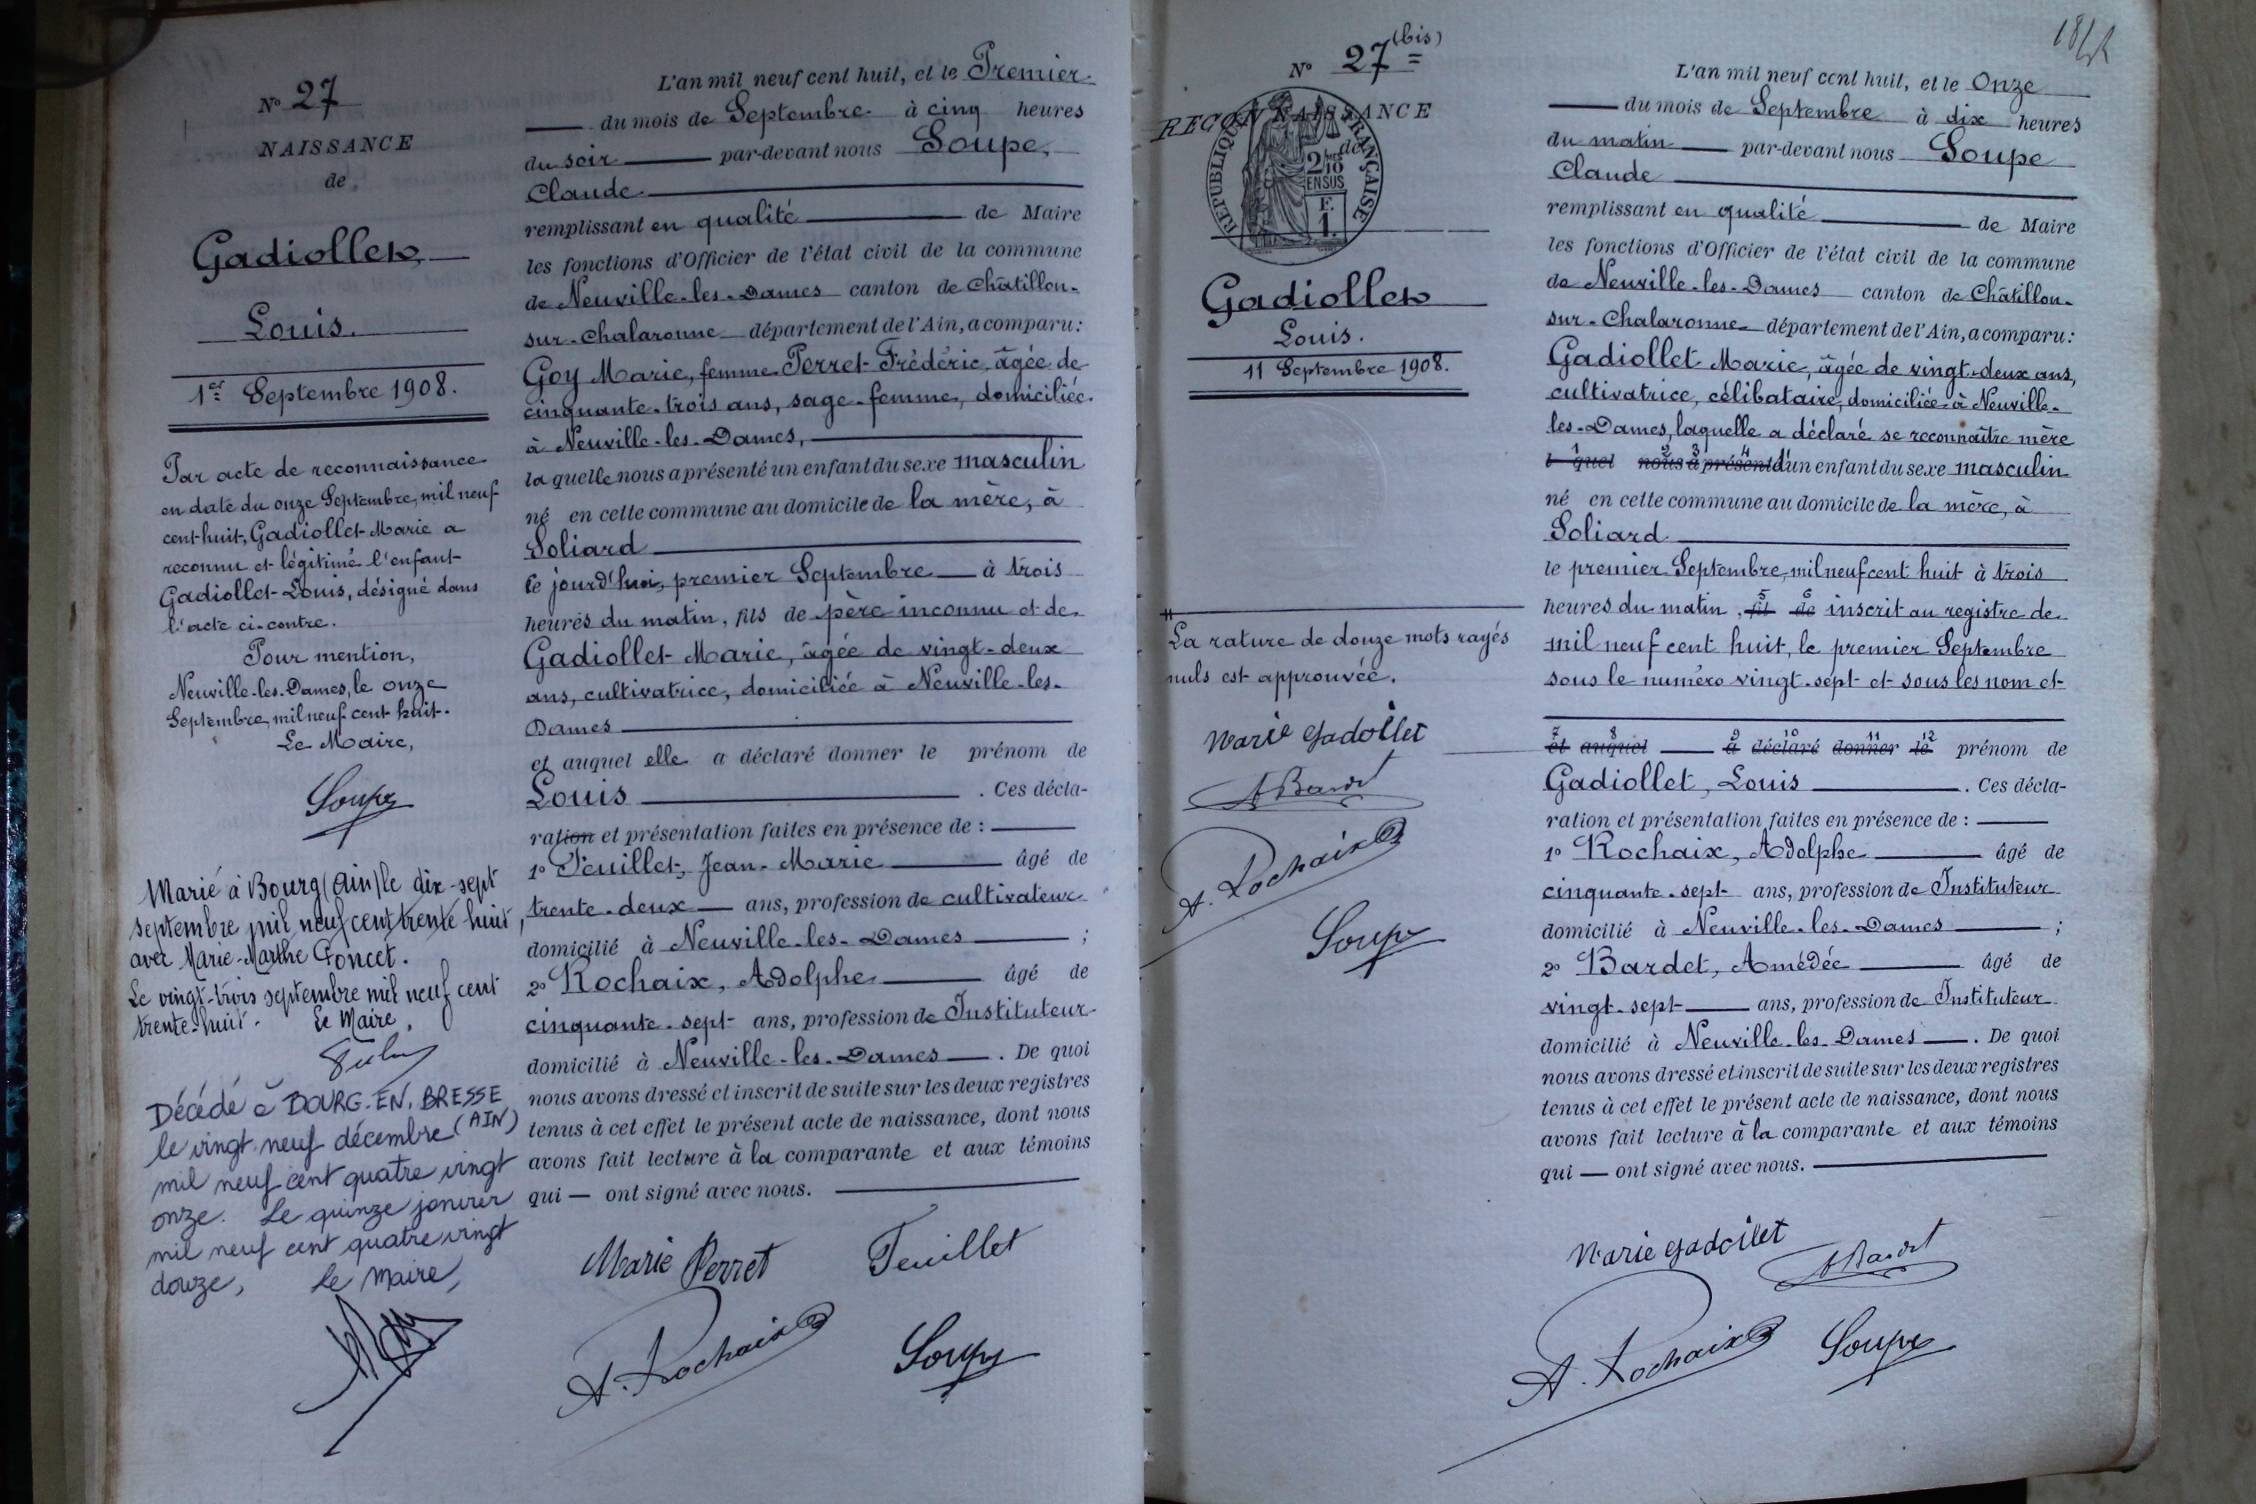 N° 27
NAISSANCE
de
Gadiollet
Louis.
1er Septembre 1908.
Par acte de reconnaissance
en date du onze Septembre, mil neuf
cent-huit, Gadiollet Marie a
reconnu et légitimé l'enfant
Gadiollet Louis, désigné dans
l'acte ci-contre.
Pour mention,
Neuville-les-Dames, le onze
Septembre, mil neuf cent huit.
Le Maire,
Soupe
Marié à Bourg (Ain) le dix-sept
septembre mil neuf cent trente huit,
avec Marie-Marthe Poncet.
Le vingt-trois septembre mil neuf cent
trente-huit. Le Maire,
Décédé à BOURG-EN-BRESSE
le vingt neuf décembre (AIN)
mil neuf cent quatre vingt
onze. Le quinze janvier
mil neuf cent quatre vingt
douze, Le Maire,
L'an mil neuf cent huit, et le Premier
du mois de Septembre à cinq heures
du soir par-devant nous Soupe,
Claude
remplissant en qualité de Maire
les fonctions d'Officier de l'état civil de la commune
de Neuville-les-Dames canton de Châtillon-
sur-Chalaronne département de l'Ain, a comparu:
Goy Marie, femme Perret Frédéric, âgée de
cinquante-trois ans, sage-femme, domiciliée
à Neuville-les-Dames,
la quelle nous a présenté un enfant du sexe masculin
né en cette commune au domicile de la mère, à
Soliard
le jourd'hui, premier Septembre à trois
heures du matin, fils de père inconnu et de
Gadiollet Marie, âgée de vingt-deux
ans, cultivatrice, domiciliée à Neuville-les-
Dames
et auquel elle a déclaré donner le prénom de
Louis. Ces décla-
ration et présentation faites en présence de :
1° Feuillet, Jean-Marie âgé de
trente-deux ans, profession de cultivateur
domicilié à Neuville-les-Dames ;
2° Rochaix, Adolphe âgé de
cinquante-sept ans, profession de Instituteur
domicilié à Neuville-les-Dames. De quoi
nous avons dressé et inscrit de suite sur les deux registres
tenus à cet effet le présent acte de naissance, dont nous
avons fait lecture à la comparante et aux témoins
qui — ont signé avec nous.
Marie Perret Feuillet
A. Rochaix Soupe
N° 27 (bis)
RECONNAISSANCE
de
RÉPUBLIQUE FRANÇAISE
2/10
EN SUS
F.
1.
Gadiollet
Louis.
11 Septembre 1908.
La rature de douze mots rayés
nuls est approuvée.
Marie gadollet
A Bardet
A. Rochaix
Soupe
L'an mil neuf cent huit, et le Onze
du mois de Septembre à dix heures
du matin par-devant nous Soupe
Claude
remplissant en qualité de Maire
les fonctions d'Officier de l'état civil de la commune
de Neuville-les-Dames canton de Châtillon-
sur-Chalaronne département de l'Ain, a comparu:
Gadiollet Marie, âgée de vingt-deux ans,
cultivatrice, célibataire, domiciliée à Neuville-
les-Dames, laquelle a déclaré se reconnaître mère
1 2 3 4
l quel nous a présenté d'un enfant du sexe masculin
né en cette commune au domicile de la mère, à
Soliard
le premier Septembre, mil neuf cent huit à trois
5 6
heures du matin, fil de inscrit au registre de
mil neuf cent huit, le premier Septembre
sous le numéro vingt-sept et sous les nom et
7 8 9 10 11 12
et auquel a déclaré donner le prénom de
Gadiollet, Louis. Ces décla-
ration et présentation faites en présence de :
1° Rochaix, Adolphe âgé de
cinquante-sept ans, profession de Instituteur
domicilié à Neuville-les-Dames ;
2° Bardet, Amédée âgé de
vingt-sept ans, profession de Instituteur
domicilié à Neuville-les-Dames. De quoi
nous avons dressé et inscrit de suite sur les deux registres
tenus à cet effet le présent acte de naissance, dont nous
avons fait lecture à la comparante et aux témoins
qui — ont signé avec nous.
Marie gadollet A Bardet
A. Rochaix Soupe